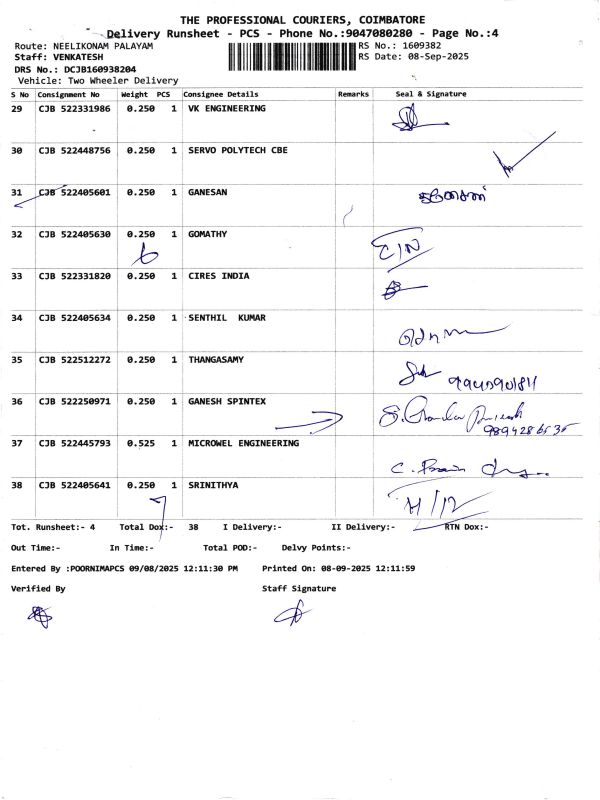 THE PROFESSIONAL COURIERS, COIMBATORE
Delivery Runsheet - PCS - Phone No.:9047080280 - Page No.:4
Route: NEELIKONAM PALAYAM RS No.: 1609382
Staff: VENKATESH RS Date: 08-Sep-2025
DRS No.: DCJB160938204
Vehicle: Two Wheeler Delivery
S No Consignment No Weight PCS Consignee Details Remarks Seal & Signature
29 CJB 522331986 0.250 1 VK ENGINEERING
30 CJB 522448756 0.250 1 SERVO POLYTECH CBE
31 CJB 522405601 0.250 1 GANESAN
32 CJB 522405630 0.250 1 GOMATHY
33 CJB 522331820 0.250 1 CIRES INDIA
34 CJB 522405634 0.250 1 SENTHIL KUMAR
35 CJB 522512272 0.250 1 THANGASAMY
36 CJB 522250971 0.250 1 GANESH SPINTEX
37 CJB 522445793 0.525 1 MICROWEL ENGINEERING
38 CJB 522405641 0.250 1 SRINITHYA
Tot. Runsheet:- 4 Total Dox:- 38 I Delivery:- II Delivery:- RTN Dox:-
Out Time:- In Time:- Total POD:- Delvy Points:-
Entered By :POORNIMAPCS 09/08/2025 12:11:30 PM Printed On: 08-09-2025 12:11:59
Verified By Staff Signature